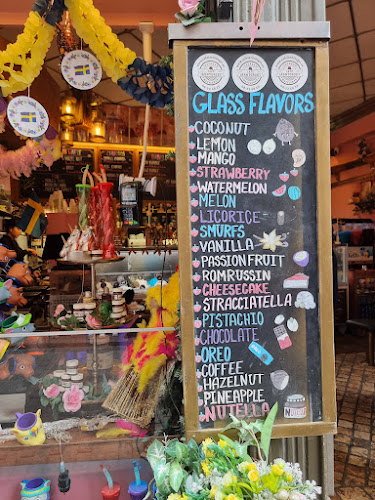 GLASS FLAVORS
COCONUT
LEMON
MANGO
STRAWBERRY
WATERMELON
MELON
LICORICE
SMURFS
VANILLA
PASSION FRUIT
ROMRUSSIN
CHEESECAKE
STRACCIATELLA
PISTACHIO
CHOCOLATE
OREO
COFFEE
HAZELNUT
PINEAPPLE
NUTELLA